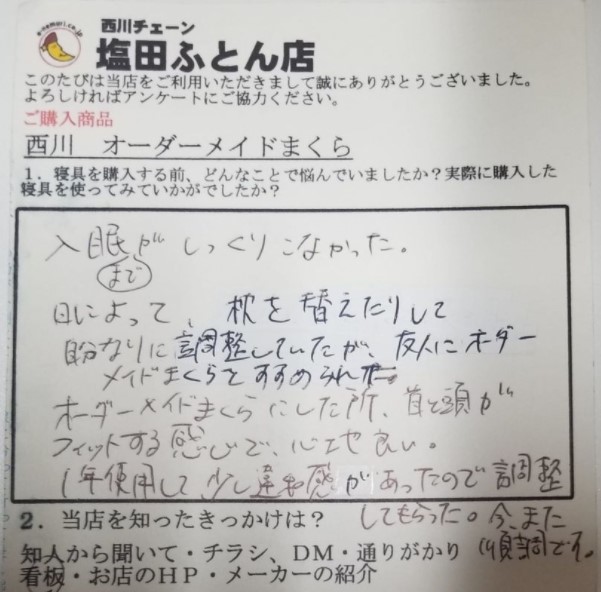 e-nemuri.co.jp
西川チェーン
塩田ふとん店
このたびは当店をご利用いただきまして誠にありがとうございました。
よろしければアンケートにご協力ください。
ご購入商品
西川　オーダーメイドまくら
1．寝具を購入する前、どんなことで悩んでいましたか？実際に購入した
寝具を使ってみていかがでしたか？
入眠がしっくりこなかった。
まで
日によって、枕を替えたりして
自分なりに調整していたが、友人にオーダー
メイドまくらをすすめられた
オーダーメイドまくらにした所、首と頭が
フィットする感じで、心地良い。
1年使用して少し違和感があったので調整
してもらった。今、また
順調です。
2．当店を知ったきっかけは？
知人から聞いて・チラシ、DM・通りがかり
看板・お店のHP・メーカーの紹介